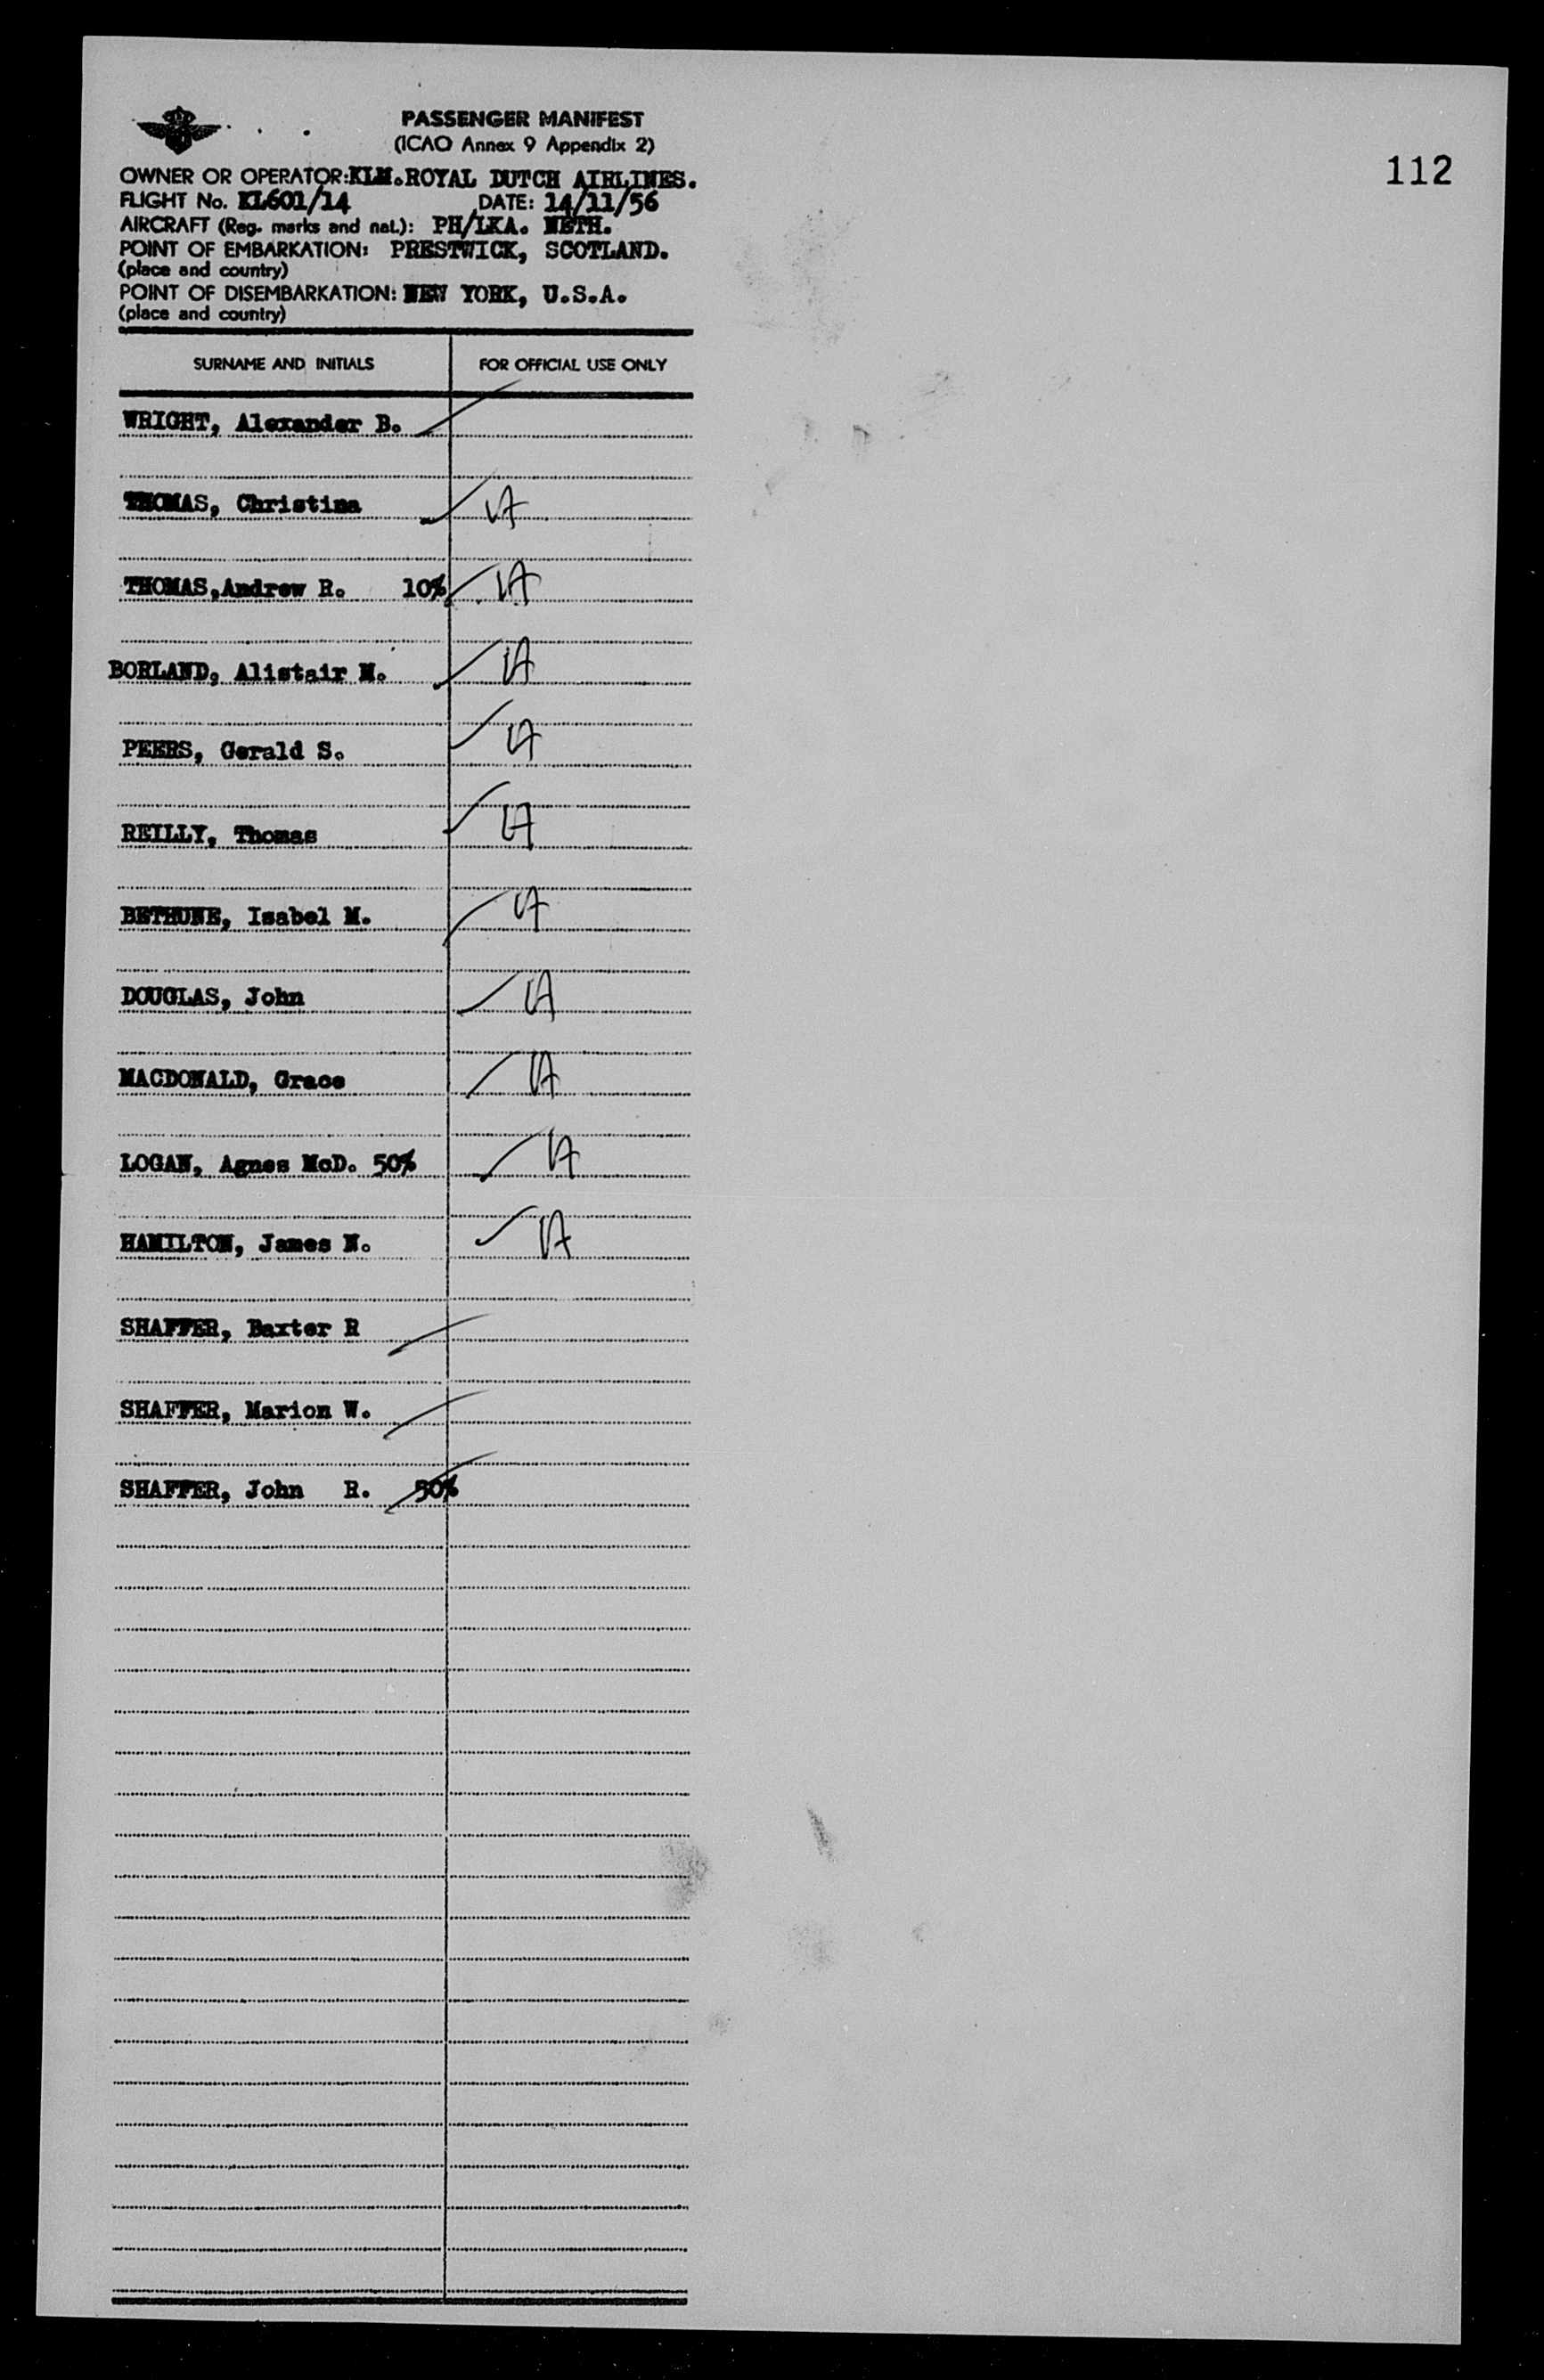 112
PASSENGER MANIFEST
(ICAO Annex 9 Appendix 2)
OWNER OR OPERATOR: KLM. ROYAL DUTCH AIRLINES.
FLIGHT No. KL601/14 DATE: 14/11/56
AIRCRAFT (Reg. marks and nat.): PH/LKA. NETH.
POINT OF EMBARKATION: PRESTWICK, SCOTLAND.
(place and country)
POINT OF DISEMBARKATION: NEW YORK, U.S.A.
(place and country)
SURNAME AND INITIALS FOR OFFICIAL USE ONLY
WRIGHT, Alexander B.
THOMAS, Christina VA
THOMAS, Andrew R. 10% VA
BORLAND, Alistair M. VA
PEERS, Gerald S. VA
REILLY, Thomas VA
BETHUNE, Isabel M. VA
DOUGLAS, John VA
MACDONALD, Grace VA
LOGAN, Agnes McD. 50% VA
HAMILTON, James N. VA
SHAFFER, Baxter R
SHAFFER, Marion W.
SHAFFER, John R. 50%